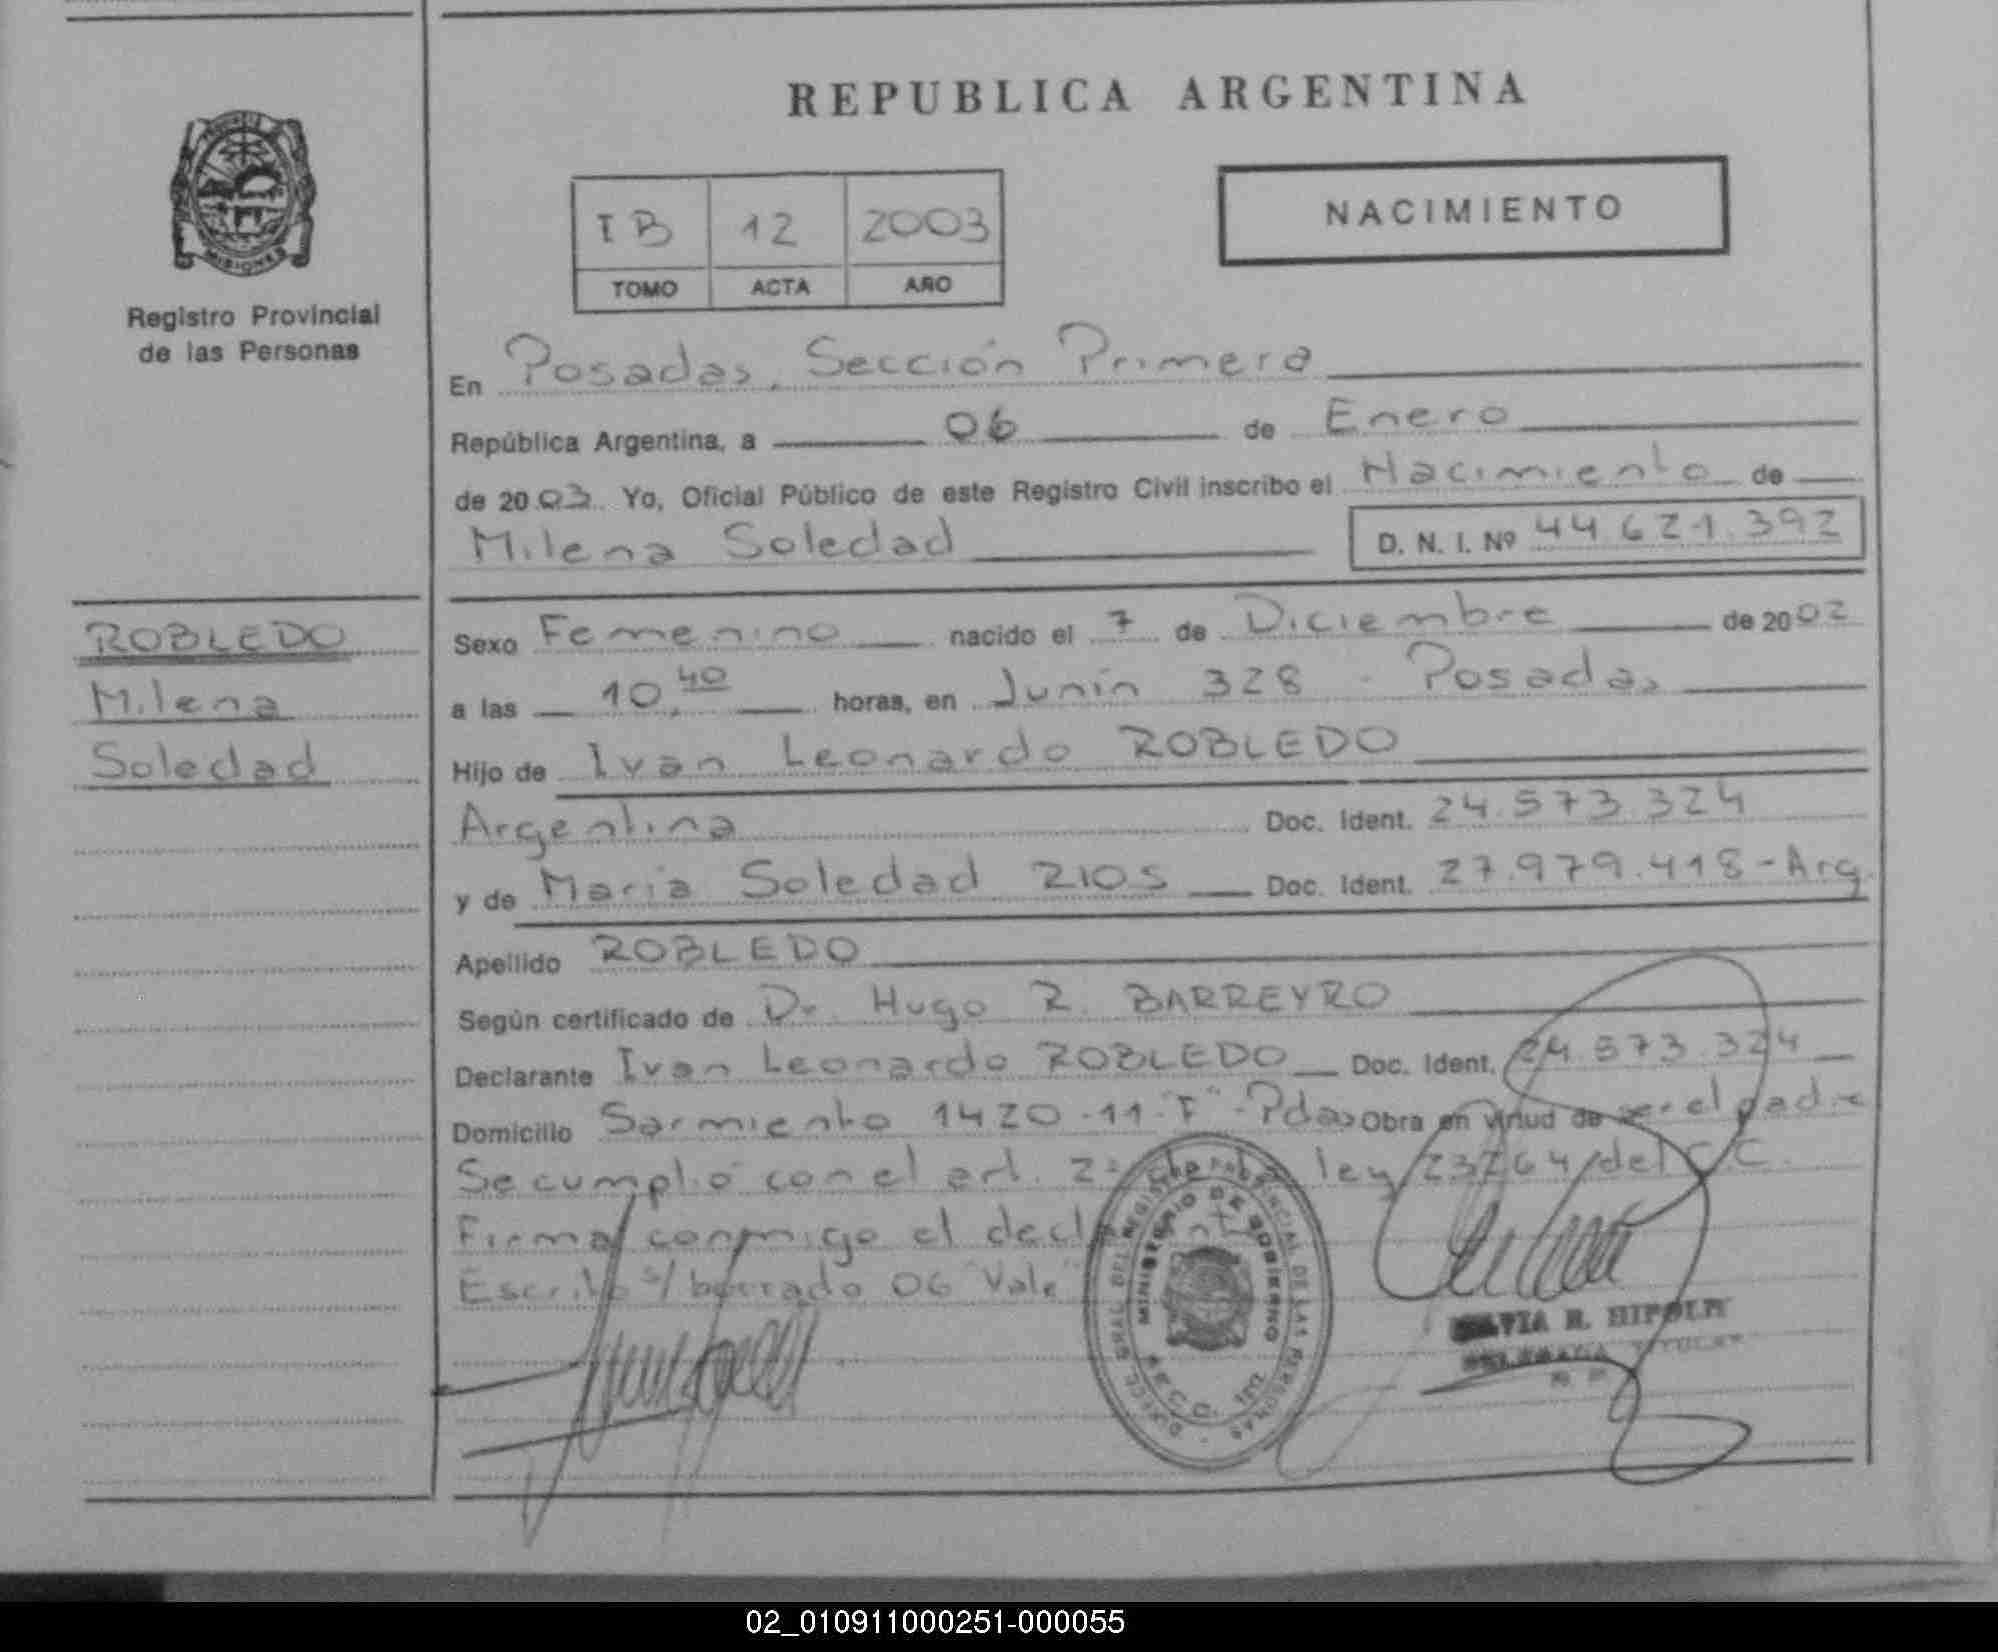 REPUBLICA ARGENTINA
PROVINCIA
MISIONES
Registro Provincial
de las Personas
I B 12 2003
TOMO ACTA AÑO
NACIMIENTO
En Posadas, Sección Primera
República Argentina, a 06 de Enero
de 2003. Yo, Oficial Público de este Registro Civil inscribo el Nacimiento de
Milena Soledad D. N. I. Nº 44.621.392
ROBLEDO
Milena
Soledad
Sexo Femenino nacido el 7 de Diciembre de 2002
a las 10,40 horas, en Junín 328 - Posadas
Hijo de Ivan Leonardo ROBLEDO
Argentina Doc. Ident. 24.573.324
y de Maria Soledad RIOS Doc. Ident. 27.979.418-Arg.
Apellido ROBLEDO
Según certificado de Dr. Hugo R. BARREYRO
Declarante Ivan Leonardo ROBLEDO Doc. Ident. 24.573.324
Domicilio Sarmiento 1420-11-"F"-Pdas Obra en virtud de ser el padre
Se cumplió con el art. 2º de la ley 23264 del C.C.
Firma conmigo el
Escrito s/ borrado 06 "Vale"
DIRECC. GRAL. DEL REGISTRO PROVINCIAL DE LAS PERSONAS
MINISTERIO DE GOBIERNO
R. HIPOLI
TITULAR
02_010911000251-000055